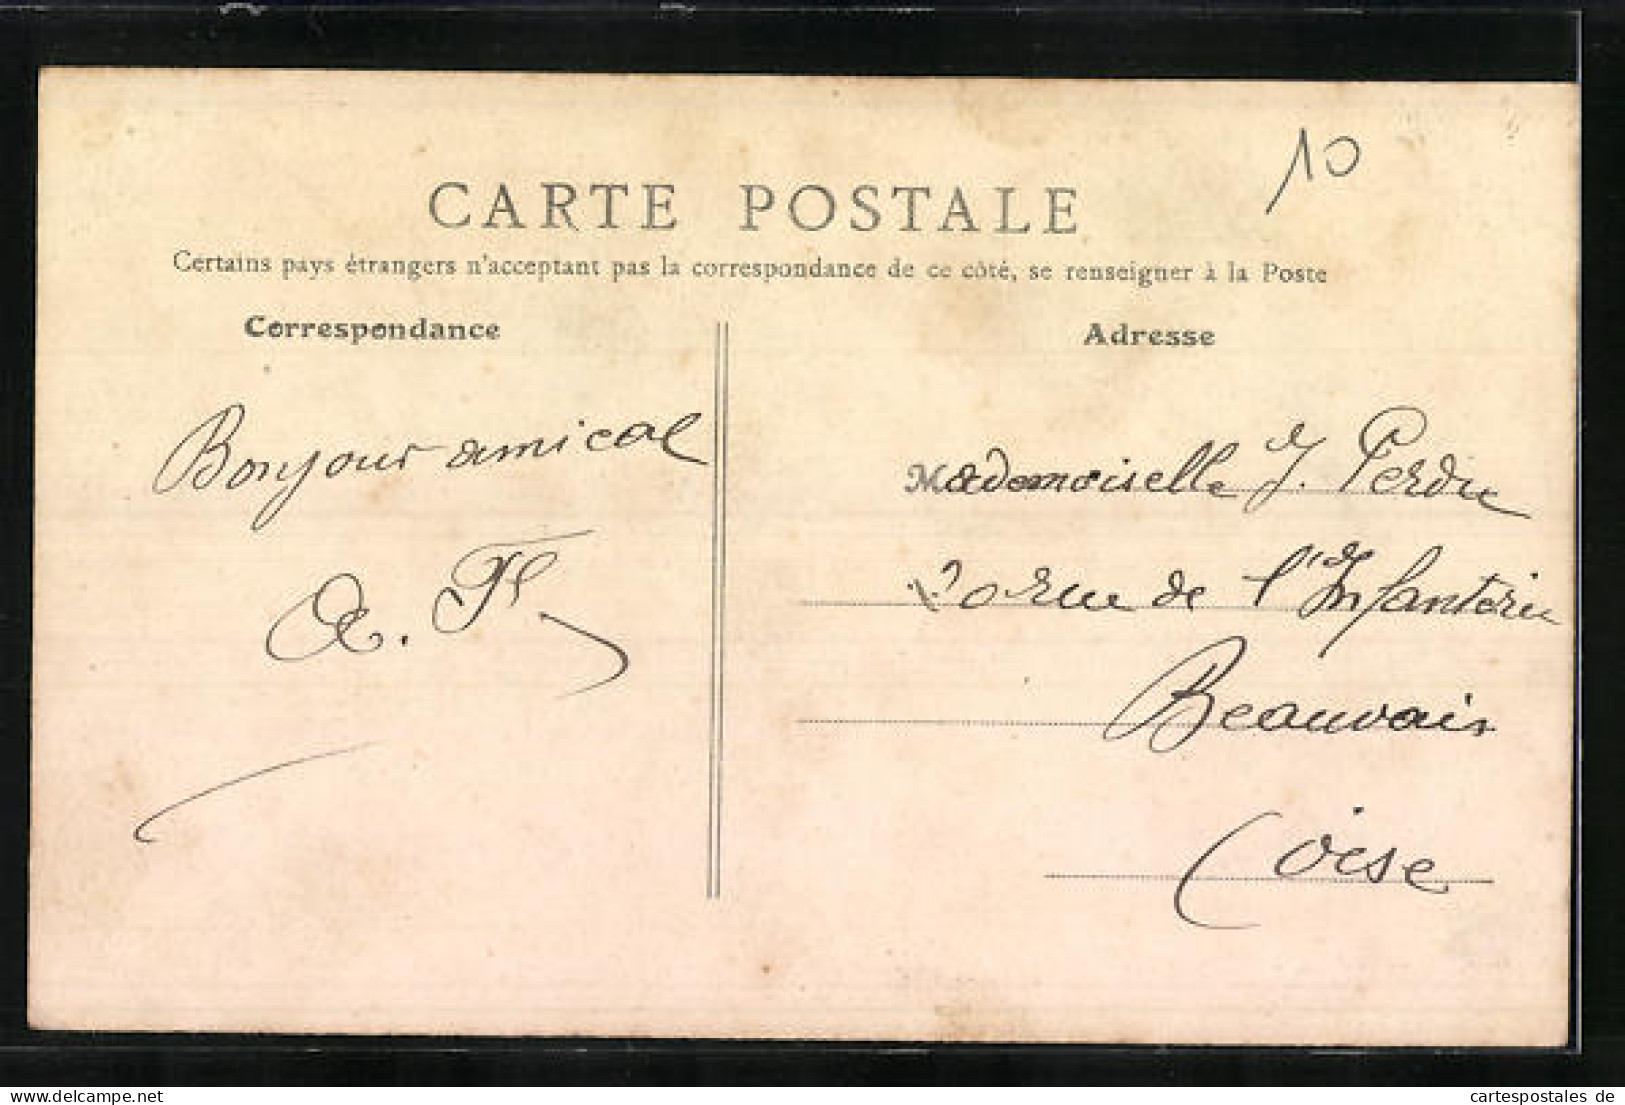 10
CARTE POSTALE
Certains pays étrangers n'acceptant pas la correspondance de ce côté, se renseigner à la Poste
Correspondance
Adresse
Bonjour amical
A. F.
Mademoiselle J. Perdu
rue de l'Infanterie
Beauvais
(Oise
passion-estampes
cartespostales de